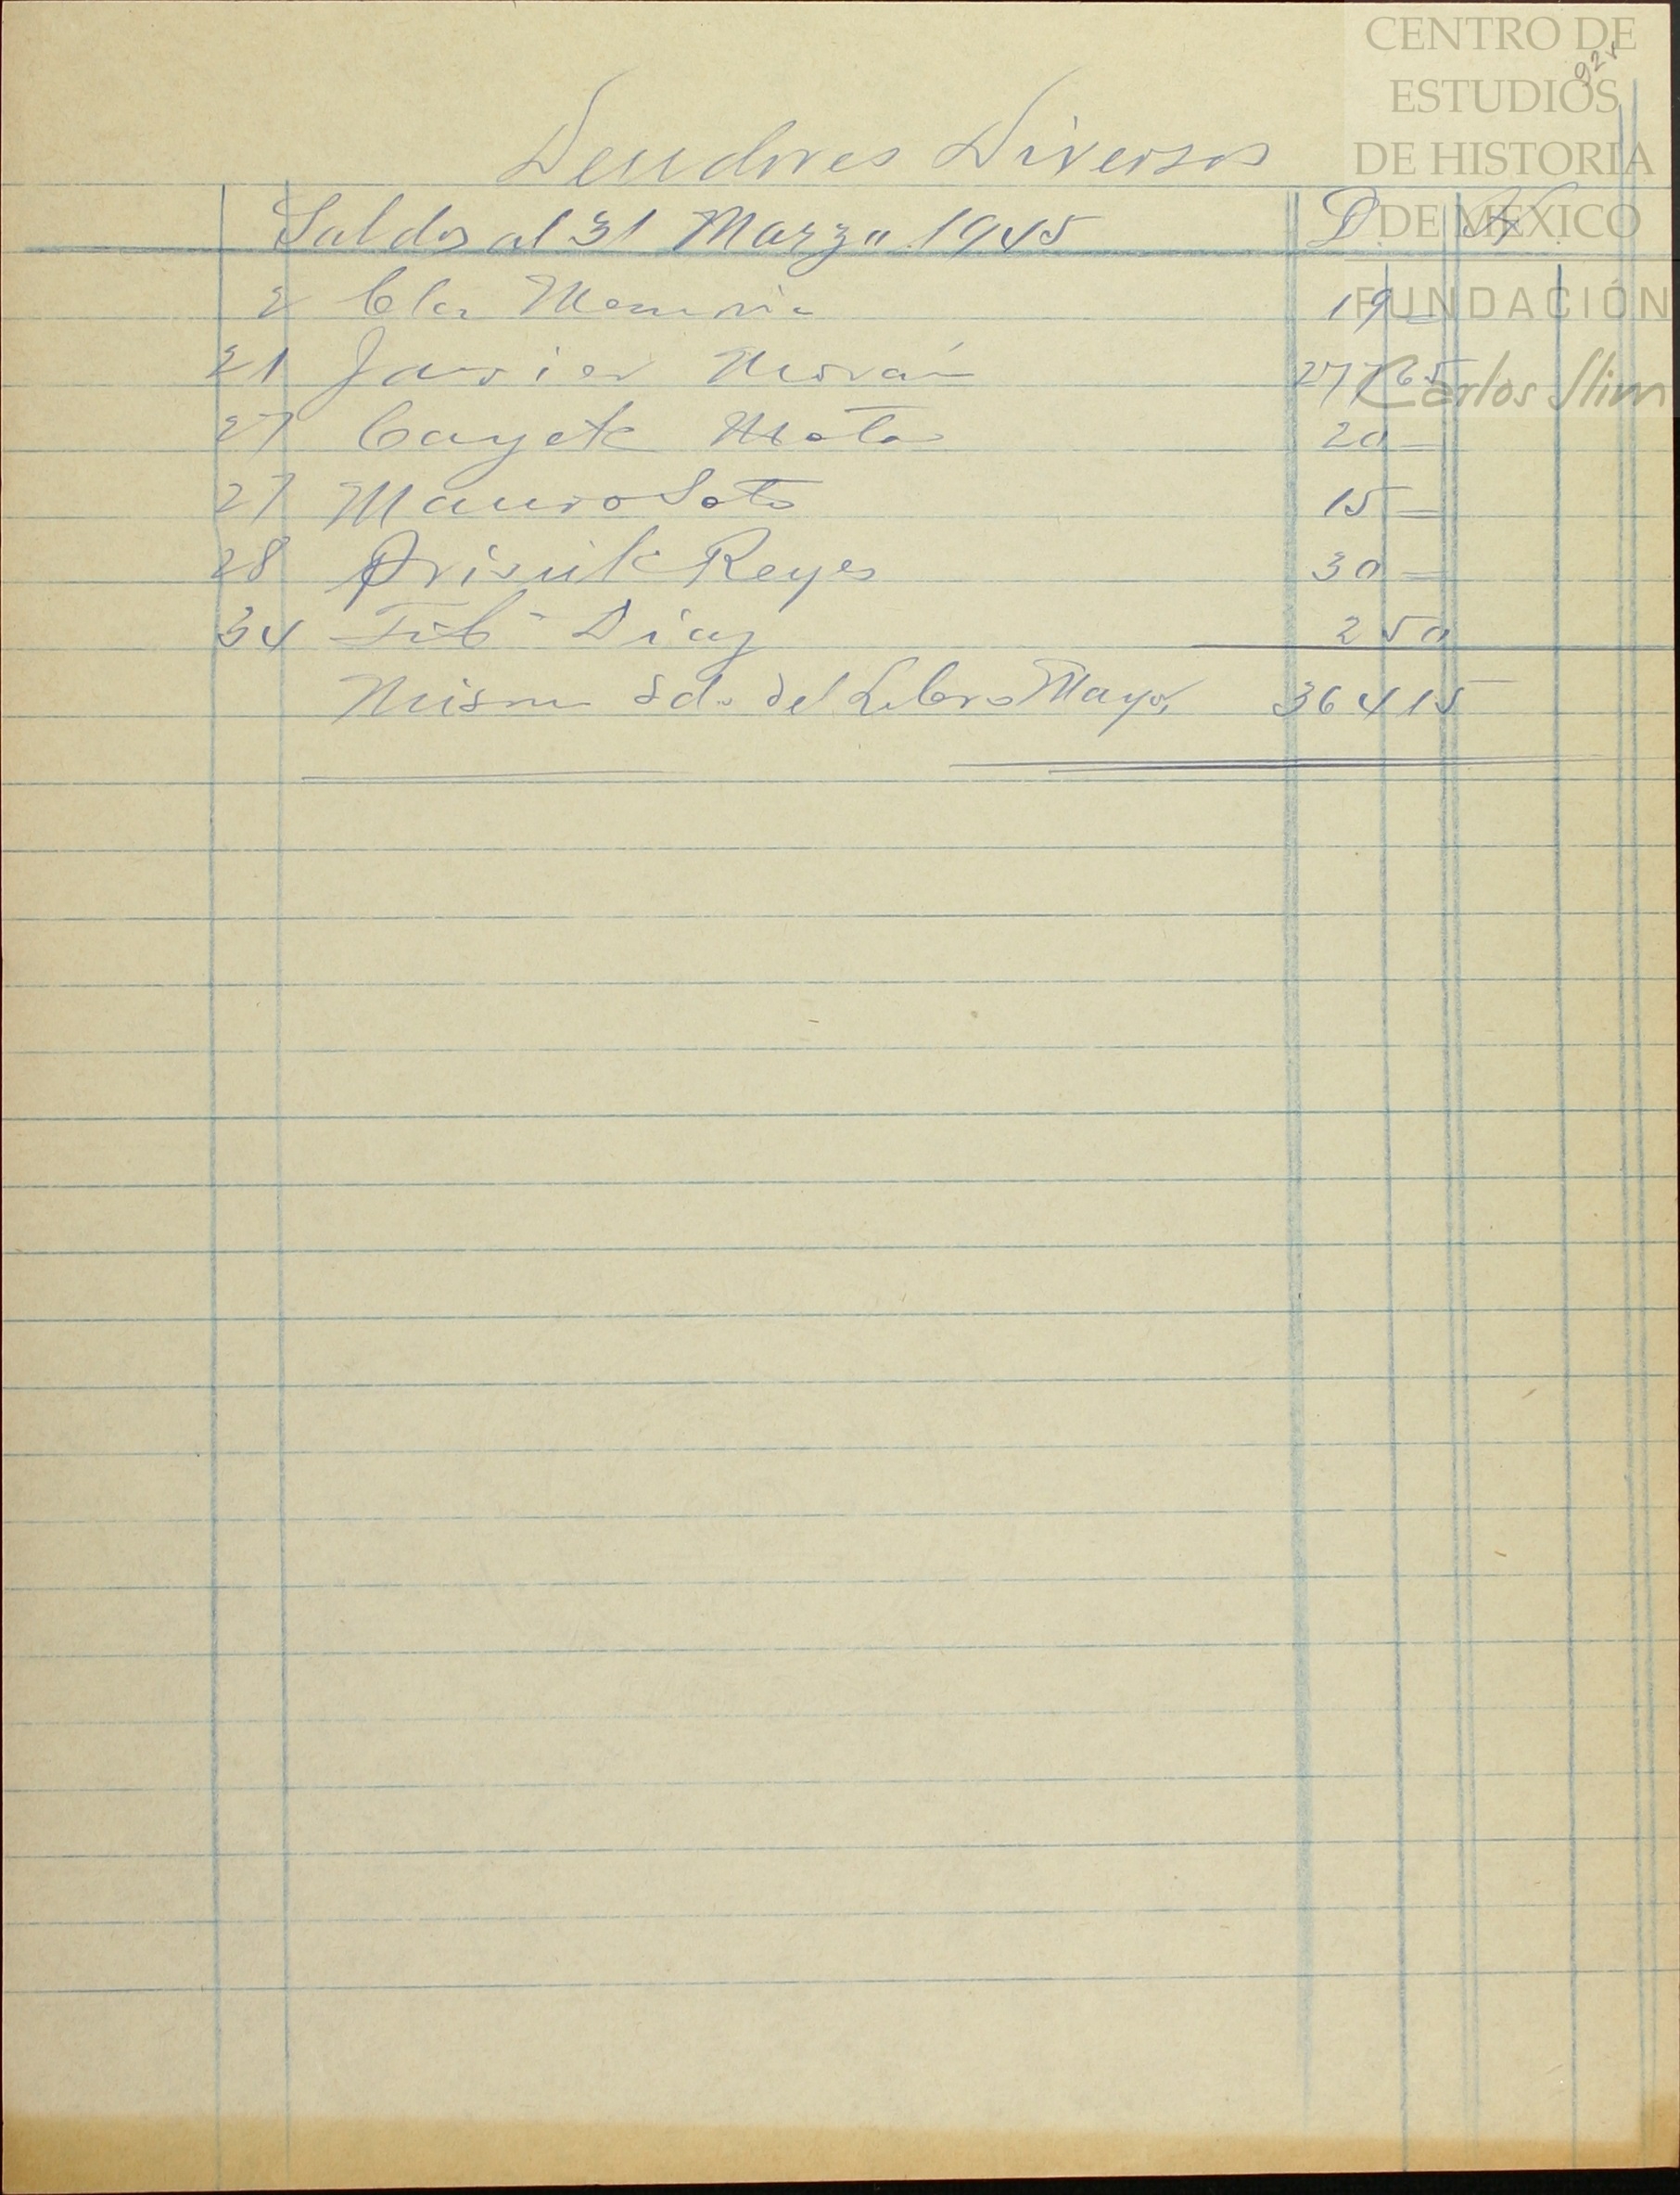 CENTRO DE
ESTUDIOS
DE HISTORIA
DE MEXICO
FUNDACIÓN
Carlos Slim
92r
Deudores Diversos
Saldos al 31 Marzo 1945 D. H
2 Memoria 19 —
21 Javier Morán 277 65
27 Cayet Mata 20 —
27 Mauro Soto 15 —
28 Reyes 30 —
34 Tib Diaz 2 50
Mismo Sdo del Libro Mayor 364 15